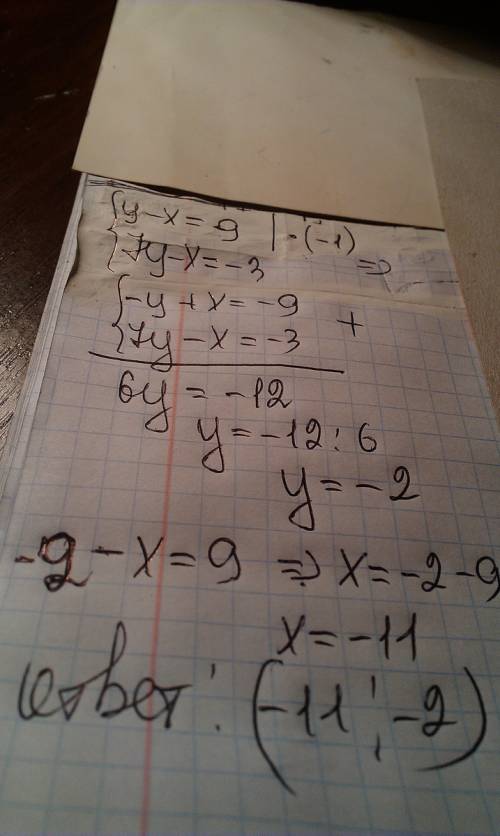 {y-x=9 |·(-1)
{7y-x=-3 =>
{-y+x=-9
{7y-x=-3 +
6y=-12
y=-12:6
y=-2
-2-x=9 => x=-2-9
x=-11
ответ: (-11;-2)